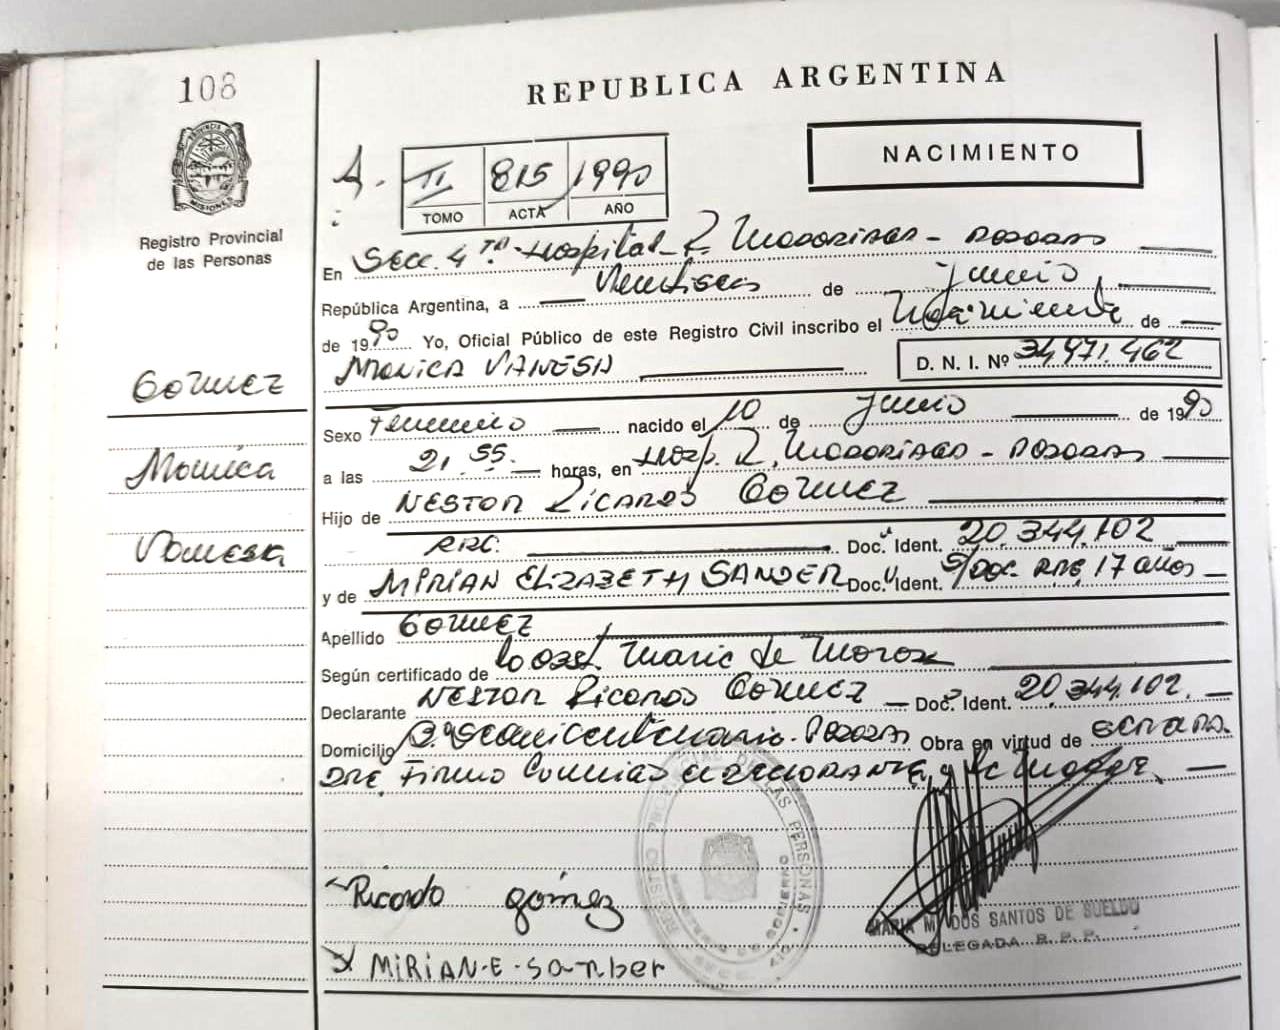 108
REPUBLICA ARGENTINA
PROVINCIA DE MISIONES
Registro Provincial
de las Personas
A. II 815 1990
TOMO ACTA AÑO
NACIMIENTO
En Secc. 4ta Hospital R. MADARIAGA - POSADAS
República Argentina, a de junio
de 1990 Yo, Oficial Público de este Registro Civil inscribo el Nacimiento de
MONICA VANESA D. N. I. Nº 34.971.462
GOMEZ
Sexo Femenino nacido el 10 de junio de 1990
Monica
a las 21.55. horas, en Hosp. R. MADARIAGA - POSADAS
Hijo de NESTOR RICARDO GOMEZ
Vanesa
ARG. Doc. Ident. 20.344.102
y de MIRIAN ELIZABETH SANDER Doc. Ident. S/DOC. ARG. 17 años
Apellido GOMEZ
Según certificado de Obst. Maria de
Declarante NESTOR RICARDO GOMEZ Doc. Ident. 20.344.102.
Domicilio Bº Sesquicentenario. POSADAS Obra en virtud de
Firman DECLARANTE y la MADRE
REGISTRO PROVINCIAL DE LAS PERSONAS
Ricardo gómez
MARIA M. DOS SANTOS DE SUELDO
DELEGADA R. P. P.
X MIRIAN-E-Sander